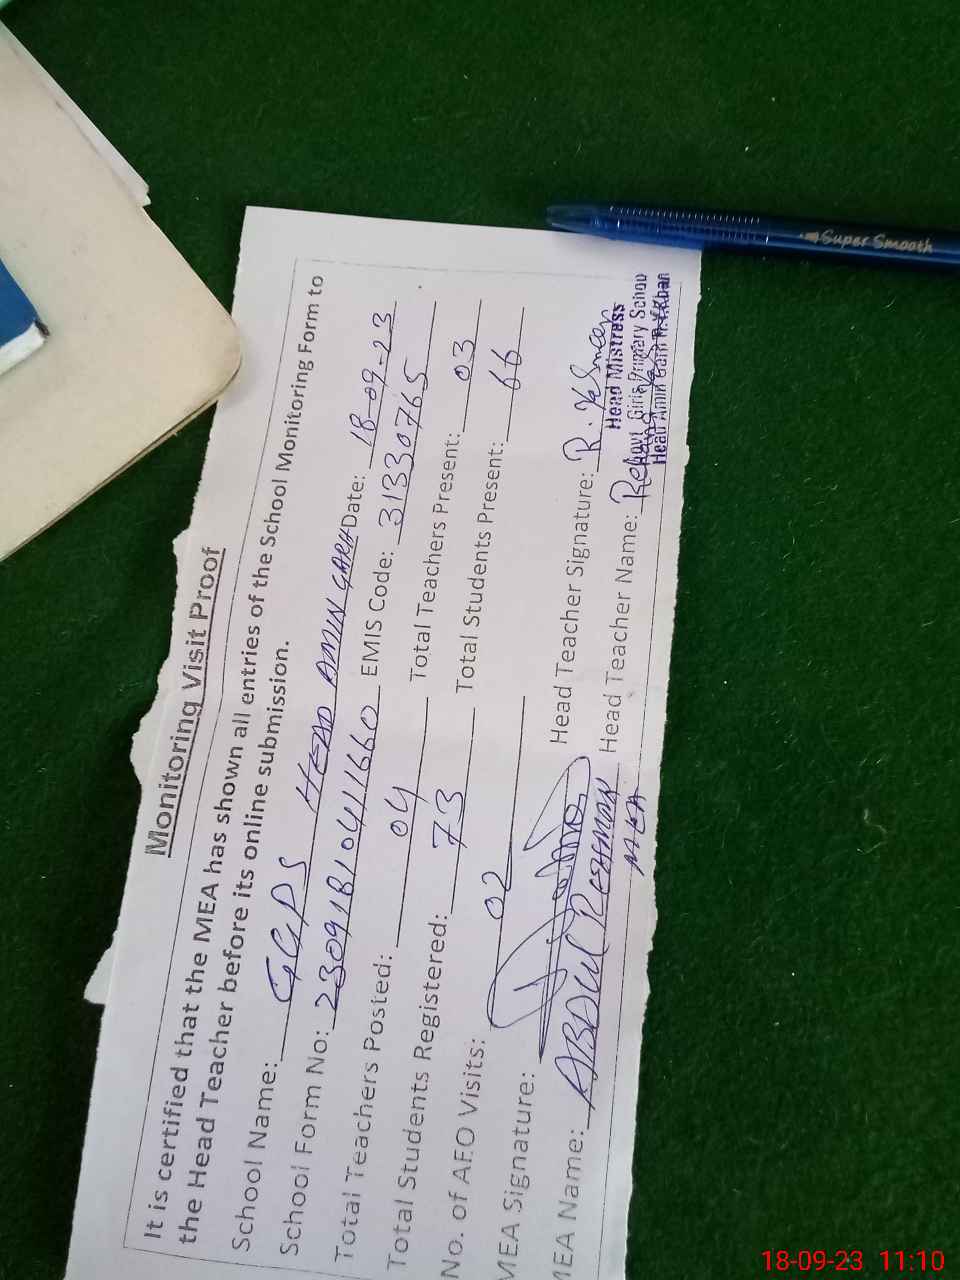 Monitoring Visit Proof
It is certified that the MEA has shown all entries of the School Monitoring Form to
the Head Teacher before its online submission.
School Name: GGPS HEAD AMIN GARH Date: 18-09-23
School Form No: 23091810411660 EMIS Code: 31330765
Total Teachers Posted: 04 Total Teachers Present: 03
Total Students Registered: 73 Total Students Present: 66
No. of AEO Visits: 02
MEA Signature: Head Teacher Signature: R. Yasmeen
MEA Name: ABDUL REHMAN Head Teacher Name:
MEA
Head Mistress
Govt Girls Primary School
Head Amin Garh R.Y.Khan
Super Smooth
18-09-23 11:10